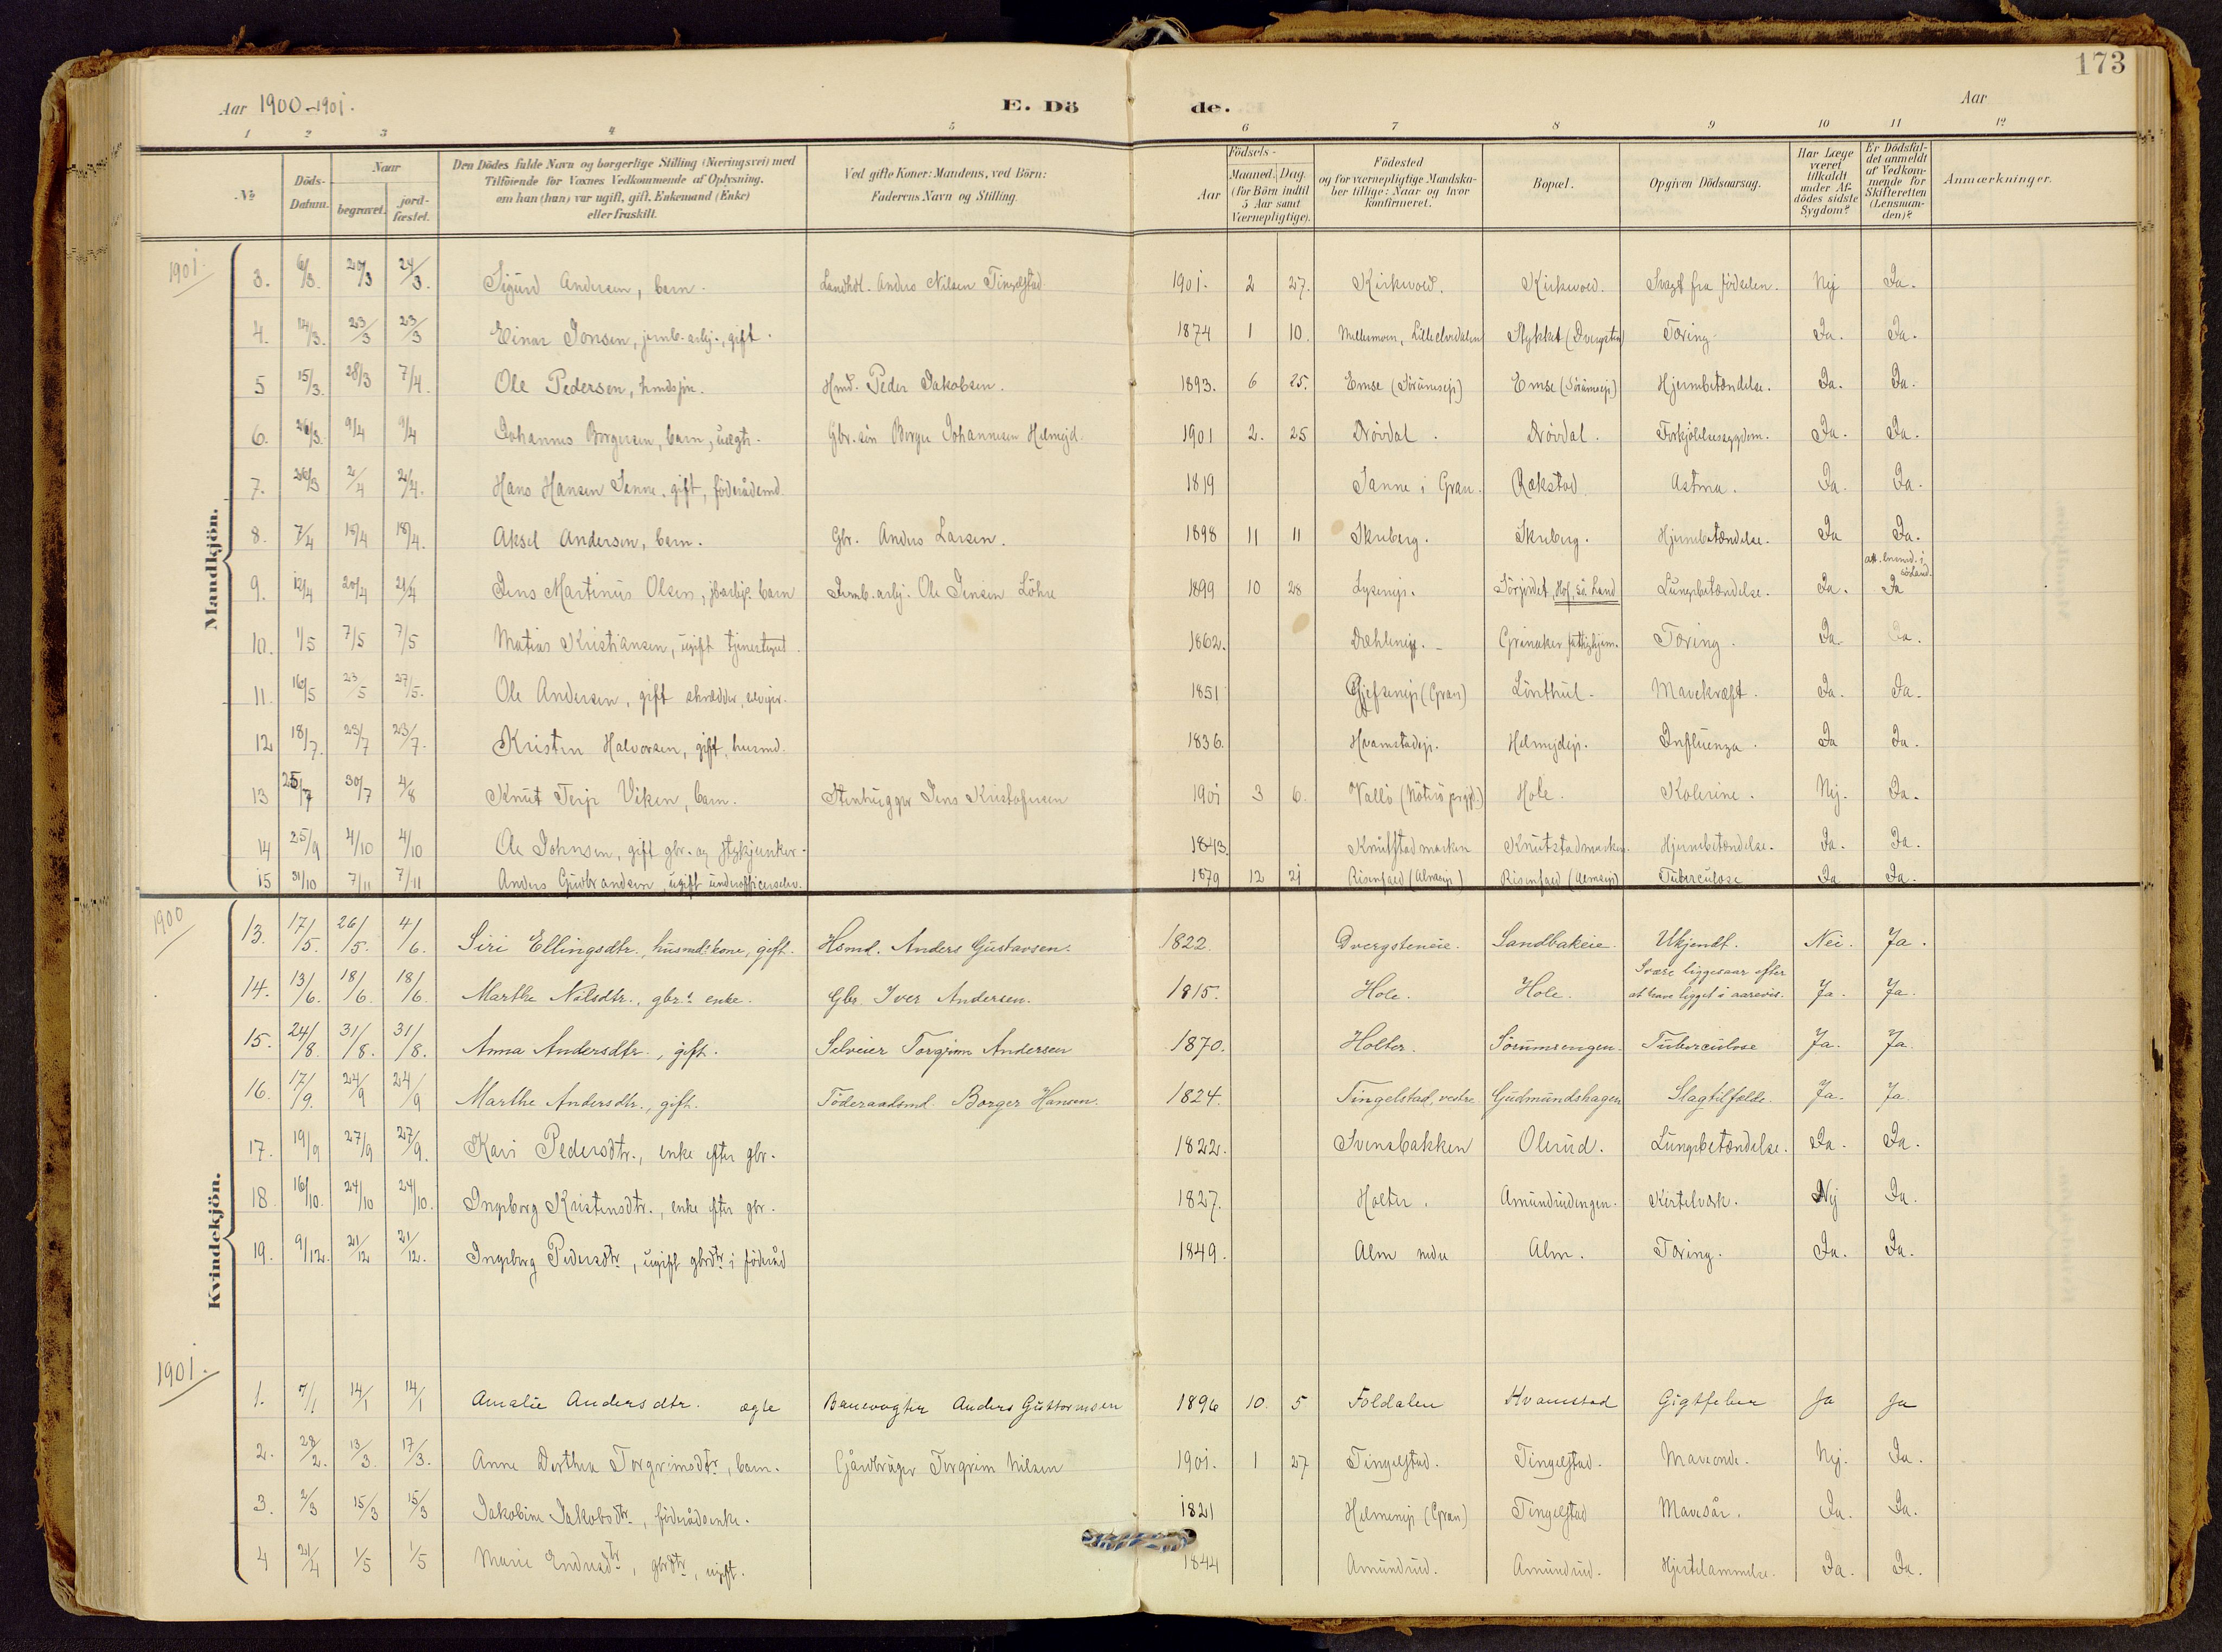 173
Aar 1900-1901.
E. Dö de.
Aar
1 2 3 4 5 6 7 8 9 10 11 12
No
Döds-Datum.
Naar begravet. jord-fæstet.
Den Dödes fulde Navn og borgerlige Stilling (Næringsvei) med Tilföiende for Voxnes Vedkommende af Oplysning, om han (hun) var ugift, gift, Enkemand (Enke) eller fraskilt.
Ved gifte Koner: Mandens, ved Börn: Faderens Navn og Stilling.
Födsels- Aar Maaned. Dag. (for Börn indtil 5 Aar samt Værnepligtige).
Födested og for værnepligtige Mandskaber tillige: Naar og hvor konfirmeret.
Bopæl.
Opgiven Dödsaarsag.
Har Læge været tilkaldt under Afdödes sidste Sygdom?
Er Dödsfaldet anmeldt af Vedkommende for Skifteretten (Lensmanden)?
Anmærkninger.
Mandkjön.
1901.
3. 6/3. 20/3 24/3. Sigurd Andersen, barn. Landhdl. Anders Nilsen Tingelstad 1901. 2 27. Kirkevold. Kirkevold. Svagt fra födselen. Nej Ja.
4. 14/3. 23/3 23/3 Einar Jonsen, jernb. arbj., gift. 1874 1 10. Mellemoen, Lilleelvedalen Stykket (Dvergsten) Tæring. Ja. Ja.
5 15/3. 28/3 7/4. Ole Pedersen, hmdssön. Hmd. Peder Jakobsen. 1893. 6 25. Emse (Sörumsejr) Emse (Sörumsejr) Hjernebetændelse. Ja. Ja.
6. 26/3. 9/4 9/4 Johannes Borgersen, barn, uægte. Gbr. sön Borger Johannesen Helmejd. 1901 2. 25 Dröivdal. Dröivdal. Forkjölelsessygdom. Ja. Ja.
7. 26/3 2/4 2/4. Hans Hansen Sanne, gift, föderådsmd. 1819 Sanne i Gran. Rækstad Astma. Ja. Ja.
8. 7/4 18/4 18/4. Aksel Andersen, barn. Gbr. Anders Larsen. 1898 11 11 Skuberg. Skuberg. Hjernebetændelse. Ja Ja.
9. 12/4 20/4 21/4 Jens Martinus Olsen, jbarbjs. barn Jernb. arbj. Ole Jensen Löhre 1899 10 28 Lysenejr. Sörjordet, Hof, Sö. Land Lungebetændelse. Ja. att. lensmd. i söLand. Ja
10. 1/5 7/5 7/5 Matias Kristiansen, ugift tjenestegut. 1862. Dæhlenejr. Grinaker fattighjem. Tæring. Ja. Ja.
11. 16/5 23/5 27/5. Ole Andersen, gift skrædder, selvejer. 1851 Gjefsenejr (Gran) Lönthul. Mavekræft. Ja. Ja.
12 18/7. 23/7 23/7. Kristen Halvorsen, gift, husmd. 1836. Hvamstadejr. Helmejdejr. Influenza. Ja Ja.
13 25/7 30/7 4/8 Knut Terje Viken, barn. Stenhugger Jens Kristofersen 1901 3 6. Vallö (Nöterö prgjd.) Hole. Kolerine. Nej. Ja.
14 25/9 4/10 4/10 Ole Johnsen, gift gbr. og stykjunker. 1843. Knutstadmarken Knutstadmarken. Hjernebetændelse. Ja. Ja.
15 31/10 7/11 7/11 Anders Gudbrandsen, ugift underofficerselev. 1879 12 21 Risengard (Almsejr) Risengard (Almsejr) Tuberculose Ja Ja.
Kvindekjön.
1900
13. 17/5. 26/5. 4/6. Siri Ellingsdtr., husmds kone, gift. Hsmd. Anders Gustavsen. 1822. Dvergsteneie. Sandbakeie. Ukjendt. Nei. Ja.
14. 13/6. 18/6. 18/6. Marthe Nilsdtr., gbr.s enke. Gbr. Iver Andersen. 1815. Hole. Hole. Svære liggesaar efter at have ligget i aarevis. Ja. Ja.
15. 24/8. 31/8. 31/8. Anna Andersdtr., gift. Selveier Torgrim Andersen 1870. Holter. Sörumsengen. Tuberculose Ja. Ja.
16. 17/9. 24/9 24/9 Marthe Andersdtr., gift. Föderaadsmd. Borger Hansen. 1824. Tingelstad, vestre. Gudmundshagen Slagtilfælde. Ja. Ja.
17. 19/9 27/9 27/9. Kari Pedersdtr., enke efter gbr. 1822. Svensbakken Olerud. Lungebetændelse. Ja. Ja.
18. 16/10. 24/10 24/10. Ingeborg Kristensdtr., enke efter gbr. 1827. Holter. Amundrudengen. Kirtelværk. Nej Ja.
19. 9/12. 21/12 21/12. Ingeborg Pedersdtr, ugift gbrdtr i föderåd 1849. Alm nedre Alm. Tæring. Ja. Ja.
1901.
1. 7/1 14/1 14/1 Amalie Andersdtr. ægte Banevogter Anders Guttormsen 1896 10. 5 Foldalen Hvamstad Gigtfeber Ja Ja
2. 28/2. 13/3. 17/3. Anne Dorthea Torgrimsdtr, barn. Gårdbruger Torgrim Nilsen 1901. 1 27 Tingelstad. Tingelstad. Maveonde. Nej. Ja.
3. 2/3 15/3 15/3 Jakobine Jakobsdtr., föderådsenke. 1821 Helmenejr (Gran) Tingelstad Mavesår. Ja. Ja.
4 21/4 1/5 1/5 Marie Endresdtr, gbrdtr, ugift. 1844 Amundrud. Amundrud. Hjertelammelse. Ja. Ja.